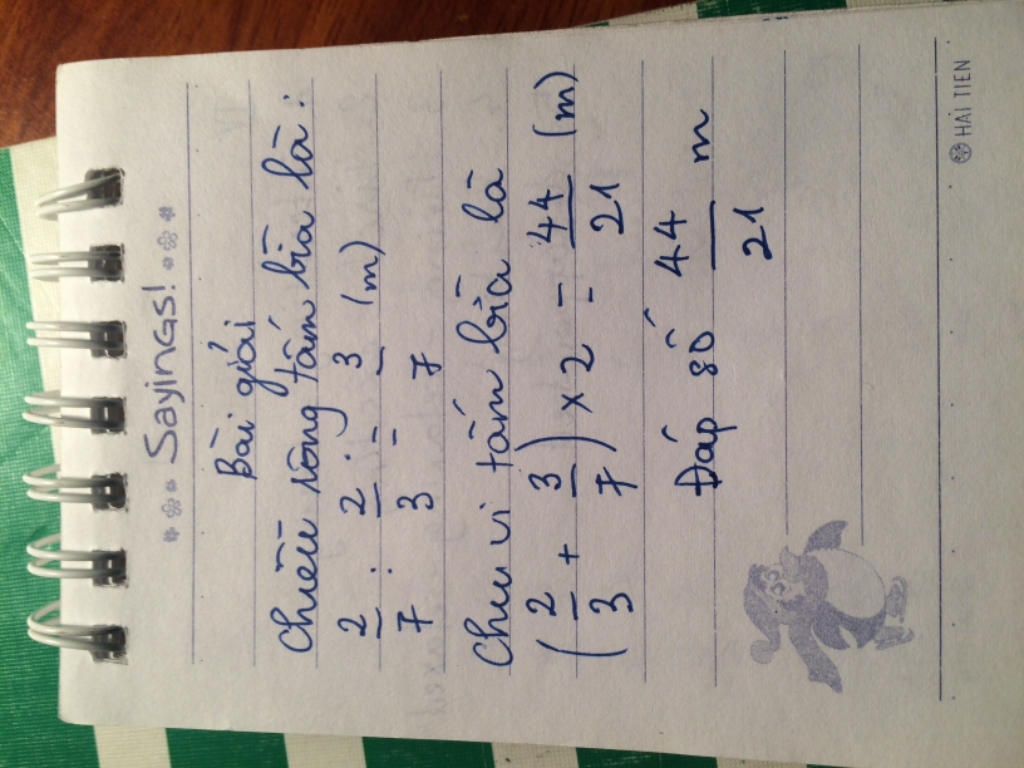 Sayings!
Bài giải
Chiều rộng tấm bìa là :
2/7 : 2/3 = 3/7 (m)
Chu vi tấm bìa là
(2/3 + 3/7) x 2 = 44/21 (m)
Đáp số 44/21 m
HẢI TIẾN